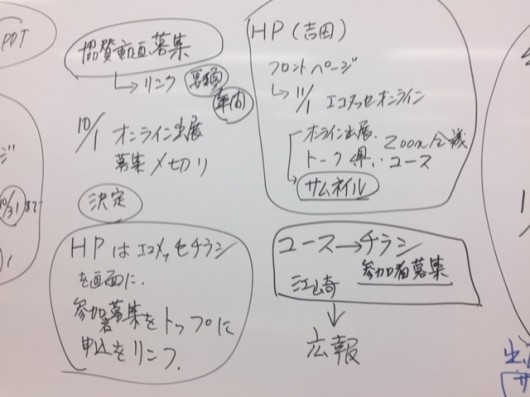 PPT
協賛動画募集
→リンク
年間
10/1 オンライン出展
募集〆切り
決定
HPはエコメッセチラシ
を画面に、
参加者募集をトップに
申込をリンク.
10/31まで
HP(吉田)
フロントページ
→11/1 エコメッセオンライン
オンライン出展、Zoom会議
トーク ユース
サムネイル
ユース→チラシ
参加者募集
江崎
↓
広報